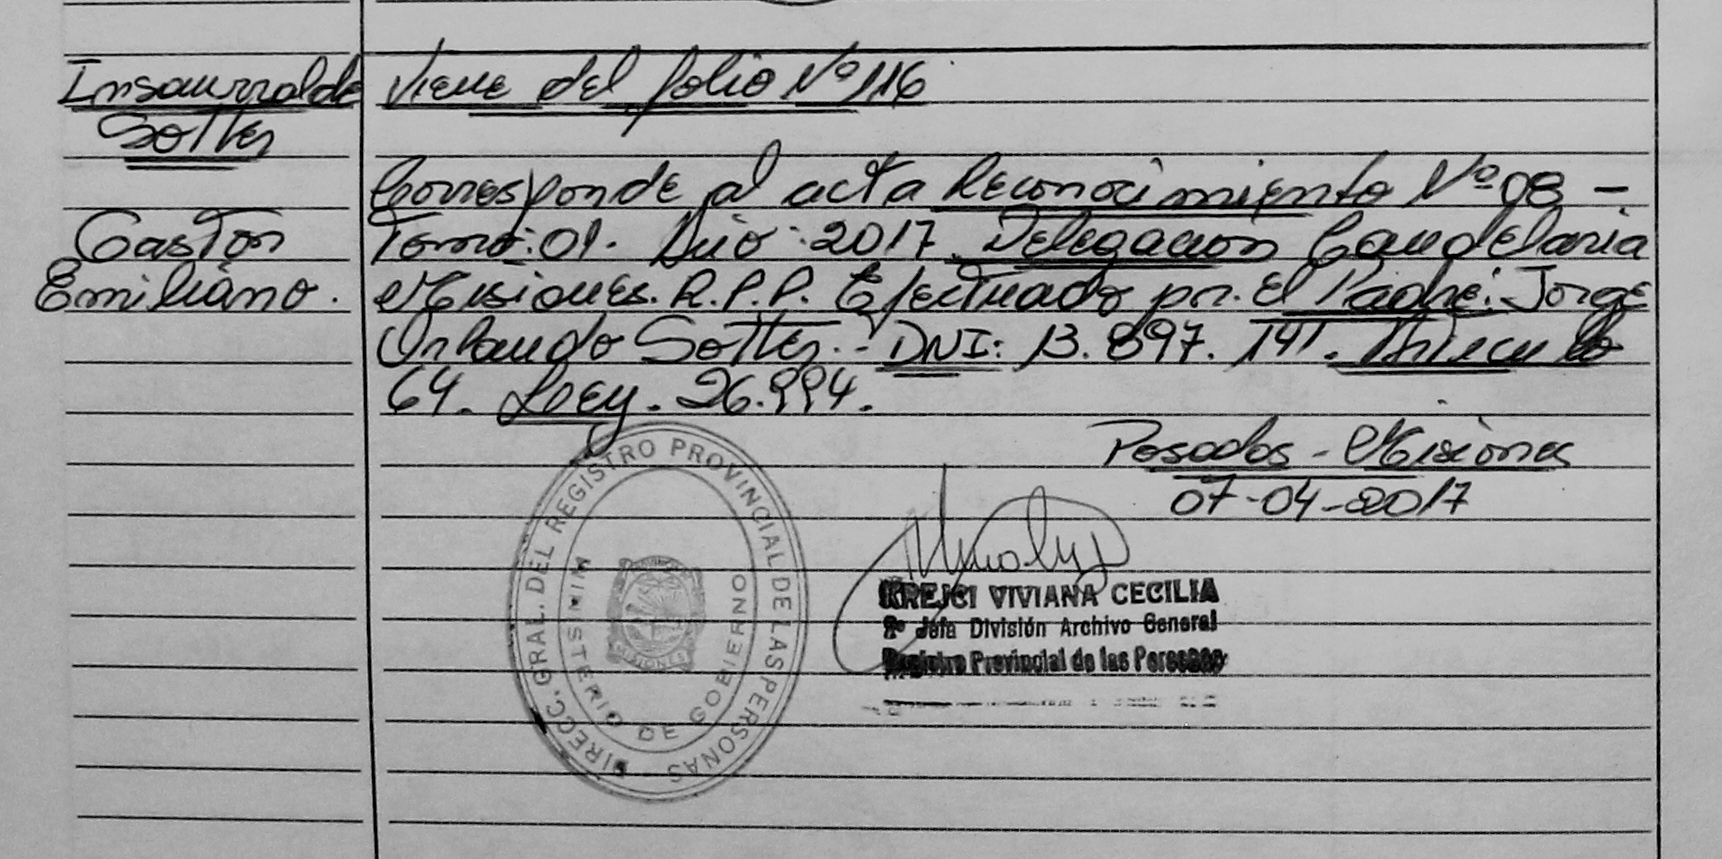 Insaurralde
Sotter
Gaston
Emiliano.
Viene del folio Nº 116
Corresponde al acta Reconocimiento Nº 08 -
Tomo: 01. Año: 2017. Delegacion Candelaria
Misiones. R.P.P. Efectuado por. El Padre: Jorge
Orlando Sotter. - DNI: 13.897.141. Artículo
64. Ley. 26.994.
Posadas - Misiones
07-04-2017
DIRECC. GRAL. DEL REGISTRO PROVINCIAL DE LAS PERSONAS
MINISTERIO DE GOBIERNO
MISIONES
KREJCI VIVIANA CECILIA
2º Jefa División Archivo General
Registro Provincial de las Personas